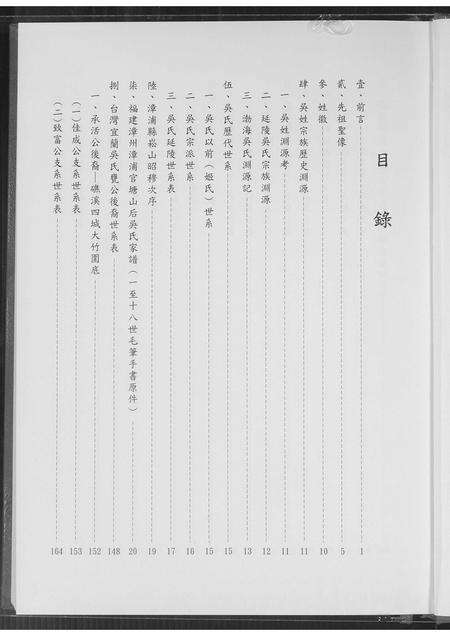 目錄
壹、前言 1
貳、先祖聖像 5
參、姓徽 10
肆、吳姓宗族歷史淵源 11
一、吳姓淵源考 11
二、延陵吳氏宗族淵源 12
三、渤海吳氏淵源記 13
伍、吳氏歷代世系 15
一、吳氏以前（姬氏）世系 15
二、吳氏宗派世系 16
三、吳氏延陵世系表 17
陸、漳浦縣崧山昭穆次序 19
柒、福建漳州漳浦官塘山后吳氏家譜（一至十八世毛筆手書原件） 20
捌、台灣宜蘭吳氏甕公後裔世系表 148
一、承活公後裔—礁溪四城大竹圍底 152
（一）佳成公支系世系表 153
（二）致富公支系世系表 164